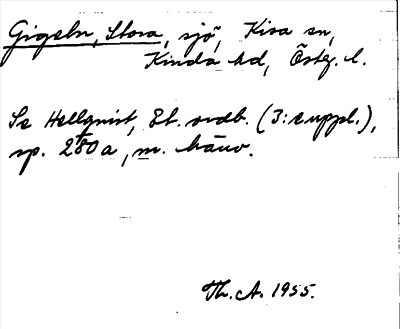 Gigeln, Stora, sjö, Kisa sn,
Kinda hd, Östg. l.
Se Hellquist, Et. ordb. (3: e uppl.),
sp. 280 a, m. hänv.
Th. A. 1955.